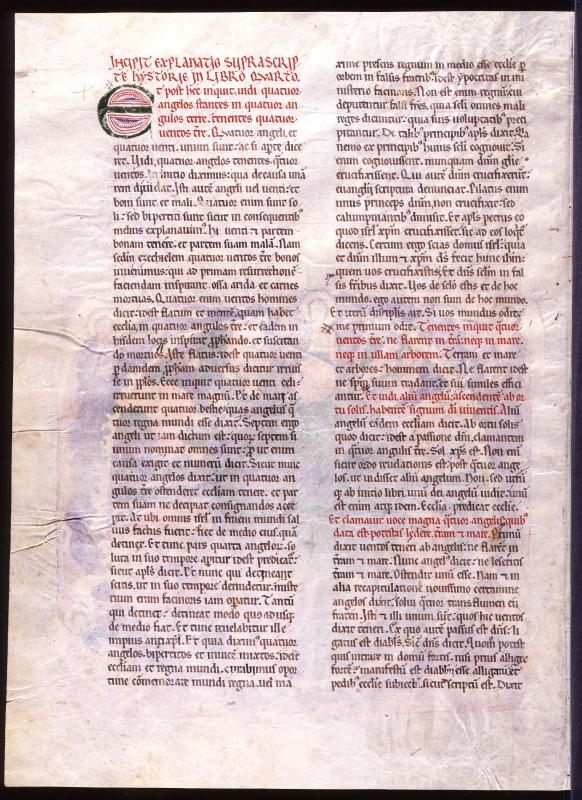 INCIPIT EXPLANATIO SUPRASCRIP
TE HYSTORIE IN LIBRO QUARTO.
Et post hec inquit. uidi quatuor
angelos stantes in quatuor an
gulos terre. tenentes quatuor
uentos tre. Quatuor angeli. et
quatuor uenti. unum sunt. ac si aperte dice
ret. Uidi quatuor angelos tenentes qtuor
uentos. In initio diximus. qua de causa una
rem diuidat. Isti aute angeli uel uenti. et
boni sunt et mali. Quatuor enim sunt so
li. sed bipertiti sunt sicut in consequentib
indius explanauim. Hi uenti et partem
bonam tenent. et partem suam mala. Nam
sedin ezechielem quatuor uentos tre bonos
inuenimus. qui ad primam resurrectione
faciendam inspirant ossa arida et carnes
mortuas. Quatuor enim uentos homines
dicit. idest flatum et mente. quam habet
ecclia. in quatuor angulos tre. et eadem in
hisdem locis inspirat pphando. et suscitan
do mortuos. Iste flatus. idest quatuor uenti
p danielem ppham aduersus dicitur irruis
se in pplos. Ecce inquit quatuor uenti celi.
irruerunt in mare magnu. Et de mari as
cenderunt quatuor bestie. quas angelus q
tuor regna mundi esse dixit. Septem ergo
angeli ut iam dictum est. quos septem si
unium nominat omnes sunt. p ut enim
causa exigit et numeru dicit. Sicut nunc
quatuor angelos dixit. ut in quatuor an
gulos tre ostenderet eccliam tenere. et par
tem suam ne decipiat consignandos acce
pit. de ubi omnis isrl in finem mundi sal
uus factus fuerit. fiet de medio eius qua
detinet. Et tunc pars quarta angelor so
luta in suo tempore apitur idest predicat.
sicut apls dicit. Et nunc qui detineant
scitis. ut in suo tempore denudetur. miste
rium enim facinoris iam opatur. Tantu
qui detinet. detineat modo quo adusq
de medio fiat. Et tunc reuelabitur ille
impius antixps. Et quia diximus quatuor
angelos. bipertitos et inuice mixtos. idest
eccliam et regna mundi. curabimus opor
tune comemorare mundi regna. uel ma
xime presens regnum in medio esse ecclie p
orbem in falsis fratrib. idest ypocritas in mi
misterio facinoris. Non est enim regnu cui
deputentur falsi frés. quia seli omnes mali
reges dicuntur. quia suis uoluptatib preci
pitantur. De talib principib apls dixit. Qa
nemo ex principib huius seli cognouit. Si
enim cognouissent. nunquam dnm glie
crucifixissent. Qui aute dnm crucifixerunt
euanglii scriptura denunciat. Pilatus enim
unus princeps dnm. non crucifixit. sed
calumpniantib dimisit. Et apls petrus eo
quod isrl xpm crucifixisset. sic ad eos loqt
dicens. Certum ergo scias domus isrl. quia
et dnm illum et xpm ds fecit hunc ihm.
quem uos crucifixistis. Et dns selm in fal
sis fribus dixit. Uos de selo estis et de hoc
mundo. ego autem non sum de hoc mundo.
Et iteru discipulis ait. Si uos mundus odit.
me primum odit. Tenentes inquit qtuor
uentos tre. ne flarent in tra. neq in mare.
neq in illam arborem. Terram et mare
et arbores. hominem dicit. Ne flarent idest
ne spm suum tradant. et sui similes effici
antur. Et uidi aliu angelu ascendente ab or
tu solis. habente signum di uiuentis. Aliu
angelu eadem eccliam dicit. Ab ortu solis
quod dicit. idest a passione dni. clamantem
in qtuor angulis tre. Sol xps est. Non eni
sicut ordo reuelationis est. post qtuor ange
los. ut uidisset aliu angelum. Non. sed utru
q ab initio libri. uni dei angelu uidit. unu
est enim atq idem. Ecclia. predicat ecclie.
Et clamauit uoce magna qtuor angelis quib
data est potestas ledere tram et mare. Primu
dixit uentos teneri ab angelis. ne flaret in
tram et mare. Nunc angel dicit. ne lesetis
tram et mare. Ostendit unu esse. Nam et in
alia recapitulatione nouissimo certamine
angelos dixit. solui qtuor trans flumen eu
fraten. Isti et illi unum sunt. quos hic uentos
dixit teneri. Ex quo aute passus est dns. li
gatus est diabls. Sic dns dicit. Quom potest
quis intrare in domu fortis. nisi prius allige
forte. manifestu est diablm esse alligatu. et
pedib ecclie subiectu. sicut scriptu est. Dixit